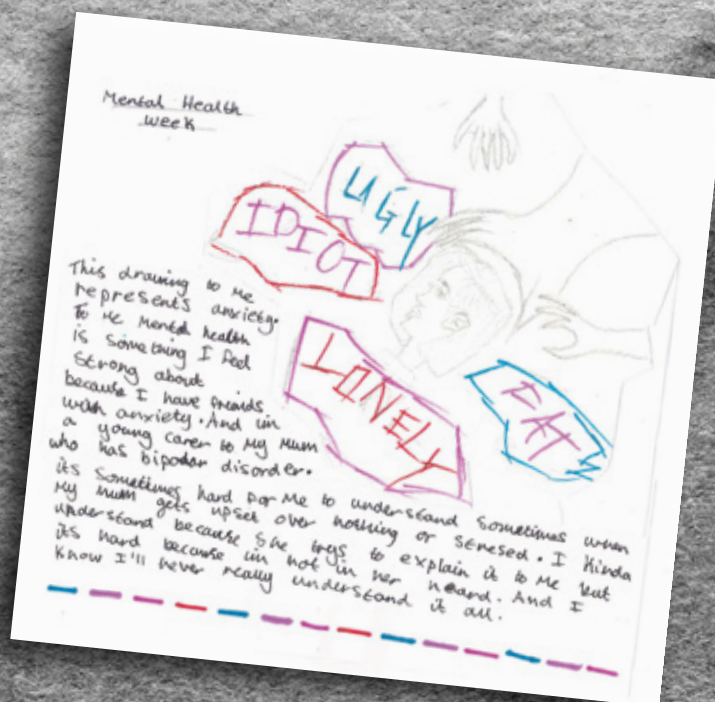 Mental Health
Week
UGLY
IDIOT
LONELY
FAT
This drawing to me
represents anxiety.
To me mental health
is something I feel
strong about
because I have friends
with anxiety. And im
a young carer to my mum
who has bipolar disorder.
its sometimes hard for me to understand sometimes when
my mum gets upset over nothing or stresed. I kinda
understand because she trys to explain it to me but
its hard because im not in her heard. And I
know I'll never really understand it all.